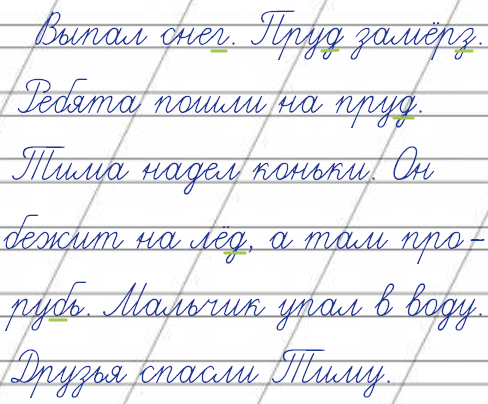 Выпал снег. Пруд замёрз.
Ребята пошли на пруд.
Тима надел коньки. Он
бежит на лёд, а там про-
рубь. Мальчик упал в воду.
Друзья спасли Тиму.